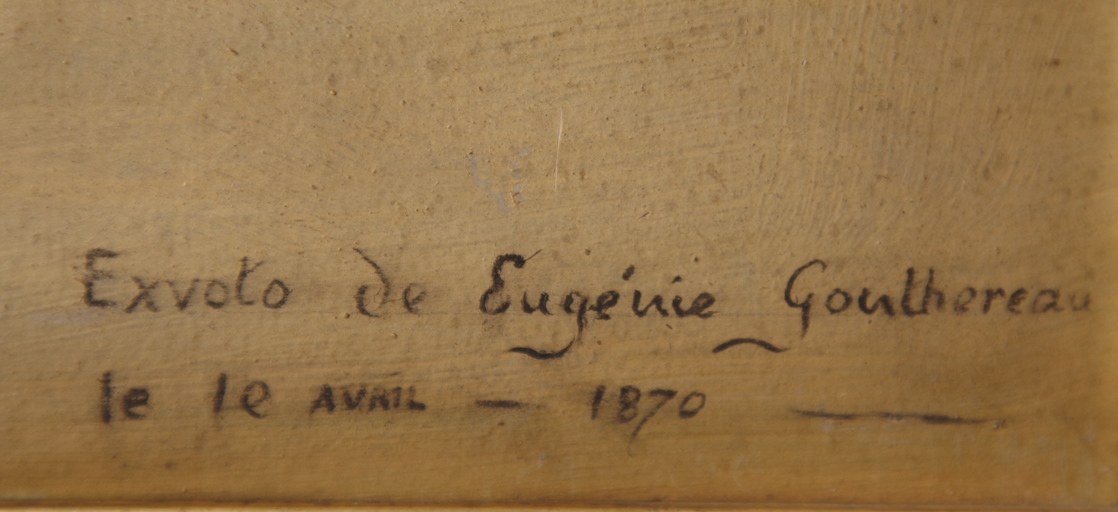 Exvoto de Eugénie Gouthereau
le 1e AVRIL — 1870 —